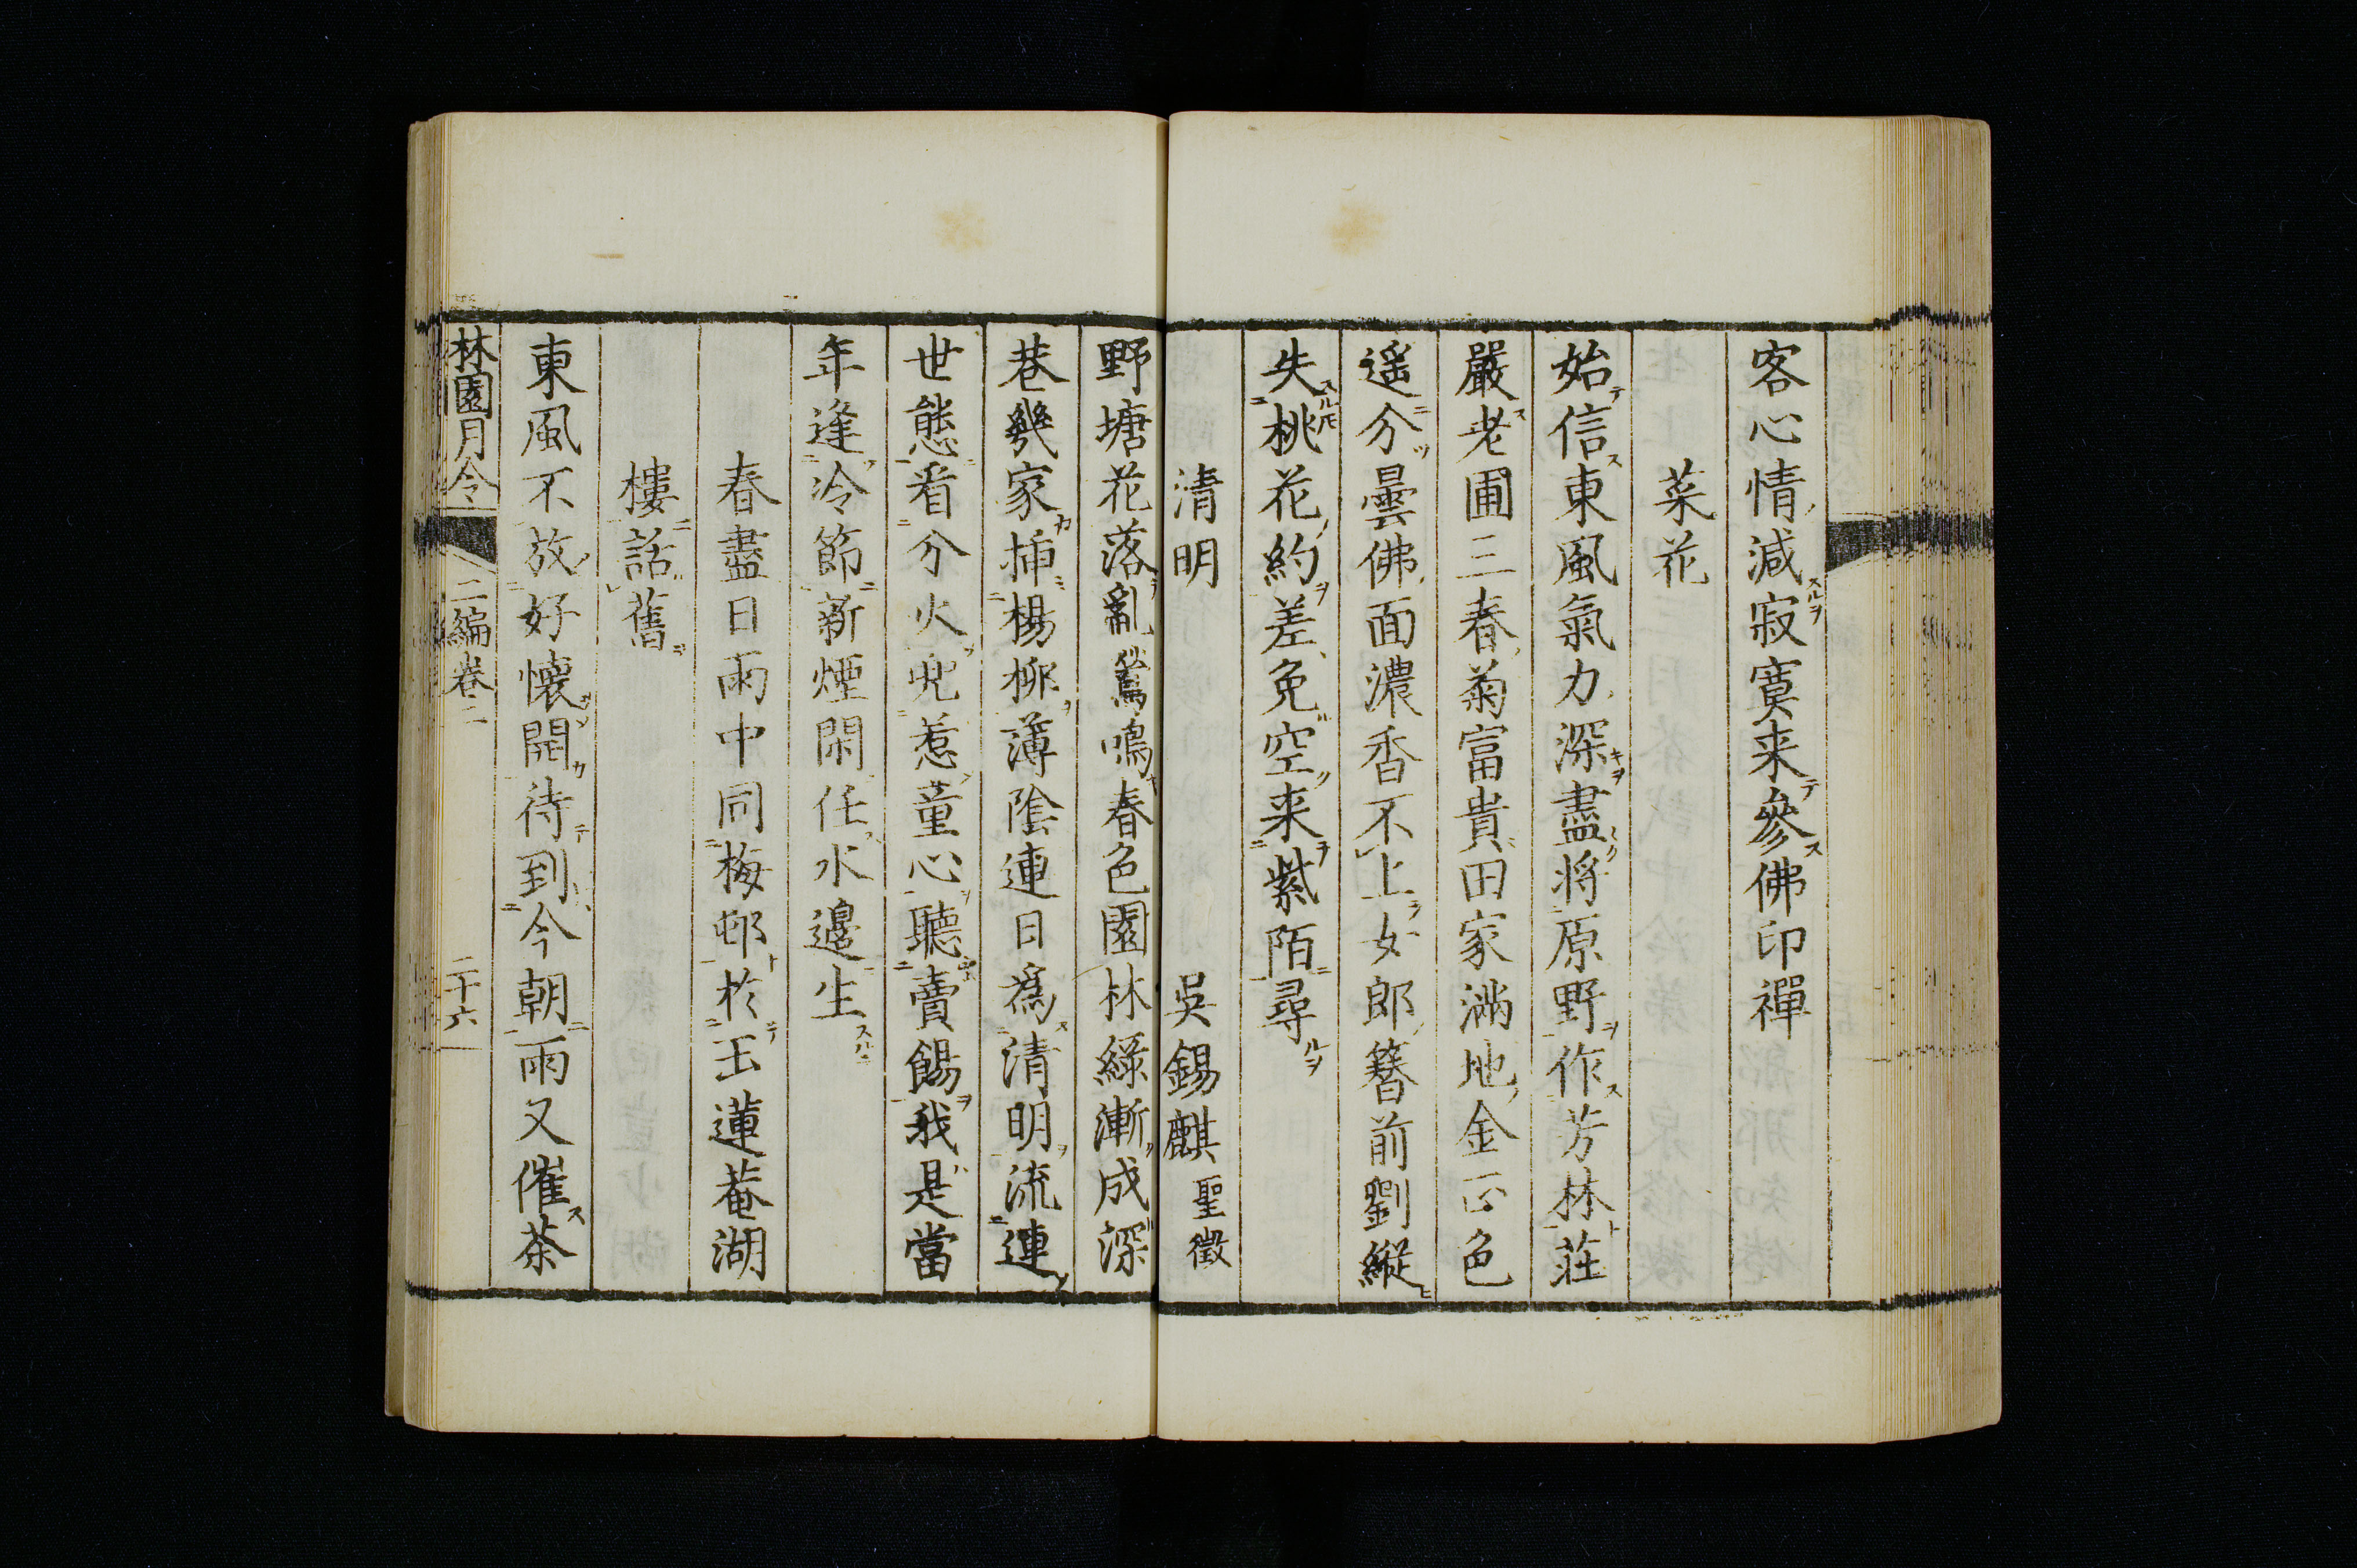 客心情減寂寞来參佛印禪
菜花
始信東風氣力深盡将原野作芳林莊
嚴老圃三春菊富貴田家滿地金正色
遥分曇佛面濃香不上女郎簪前劉縱
失桃花約差免空来紫陌尋
清明 吳錫麒聖徵
野塘花落亂鶯鳴春色園林綠漸成深
巷幾家挿楊柳薄陰連日爲清明流連
世態看分火兜惹童心聽賣餳我是當
年逢冷節新煙閑任水邊生
春盡日雨中同梅邨於玉蓮菴湖
樓話舊
東風不放好懷開待到今朝雨又催茶
林園月令 二編卷二 二十六